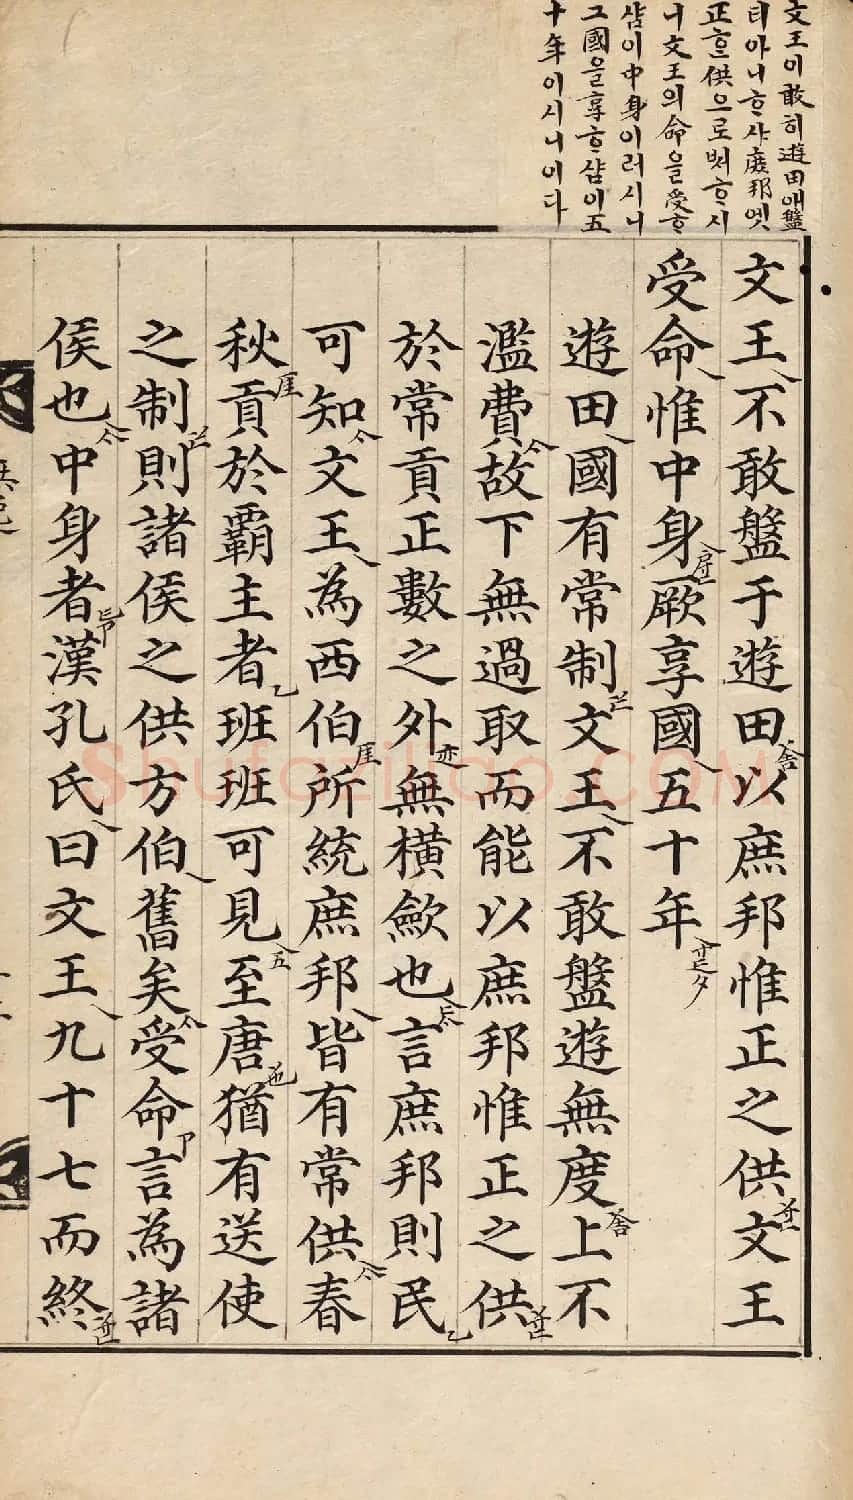 文王이敢히遊田애盤
티아니ᄒᆞ샤庶邦엣
正ᄒᆞᆫ供으로ᄡᅥᄒᆞ시
니文王의命을受ᄒᆞ
샴이中身이러시니
그國을享ᄒᆞ샴이五
十年이시니이다
文王不敢盤于遊田以庶邦惟正之供文王
受命惟中身厥享國五十年
遊田國有常制文王不敢盤遊無度上不
濫費故下無過取而能以庶邦惟正之供
於常貢正數之外無橫斂也言庶邦則民
可知文王為西伯所統庶邦皆有常供春
秋貢於霸主者班班可見至唐猶有送使
之制則諸侯之供方伯舊矣受命言為諸
侯也中身者漢孔氏曰文王九十七而終
shufaziliao.com